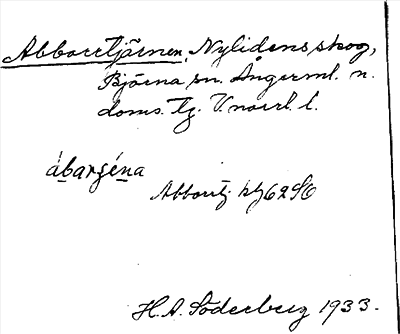 Abborrtjärnen, Nylidens skog,
Björna sn. Ångerml. n.
doms. tg. Vnorrl. l.
ábarşéna
Abborrtj. kbl 62 SO
H. A. Söderberg 1933.